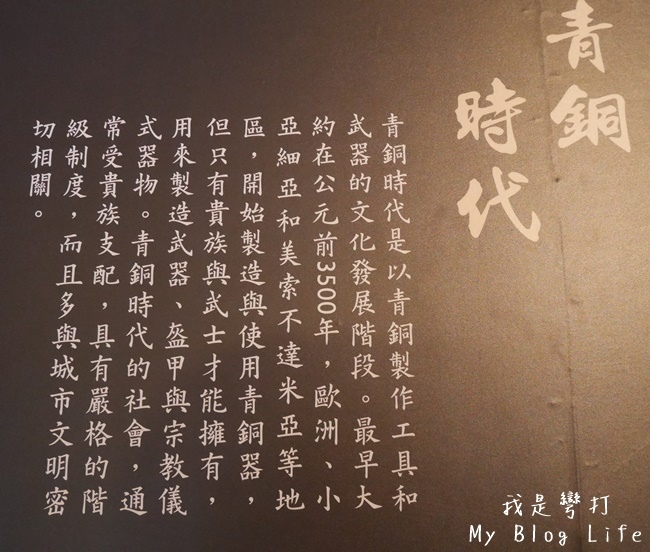 青銅
時代
青銅時代是以青銅製作工具和
武器的文化發展階段。最早大
約在公元前3500年，歐洲、小
亞細亞和美索不達米亞等地
區，開始製造與使用青銅器，
但只有貴族與武士才能擁有，
用來製造武器、盔甲與宗教儀
式器物。青銅時代的社會，通
常受貴族支配，具有嚴格的階
級制度，而且多與城市文明密
切相關。
我是彎打
My Blog Life